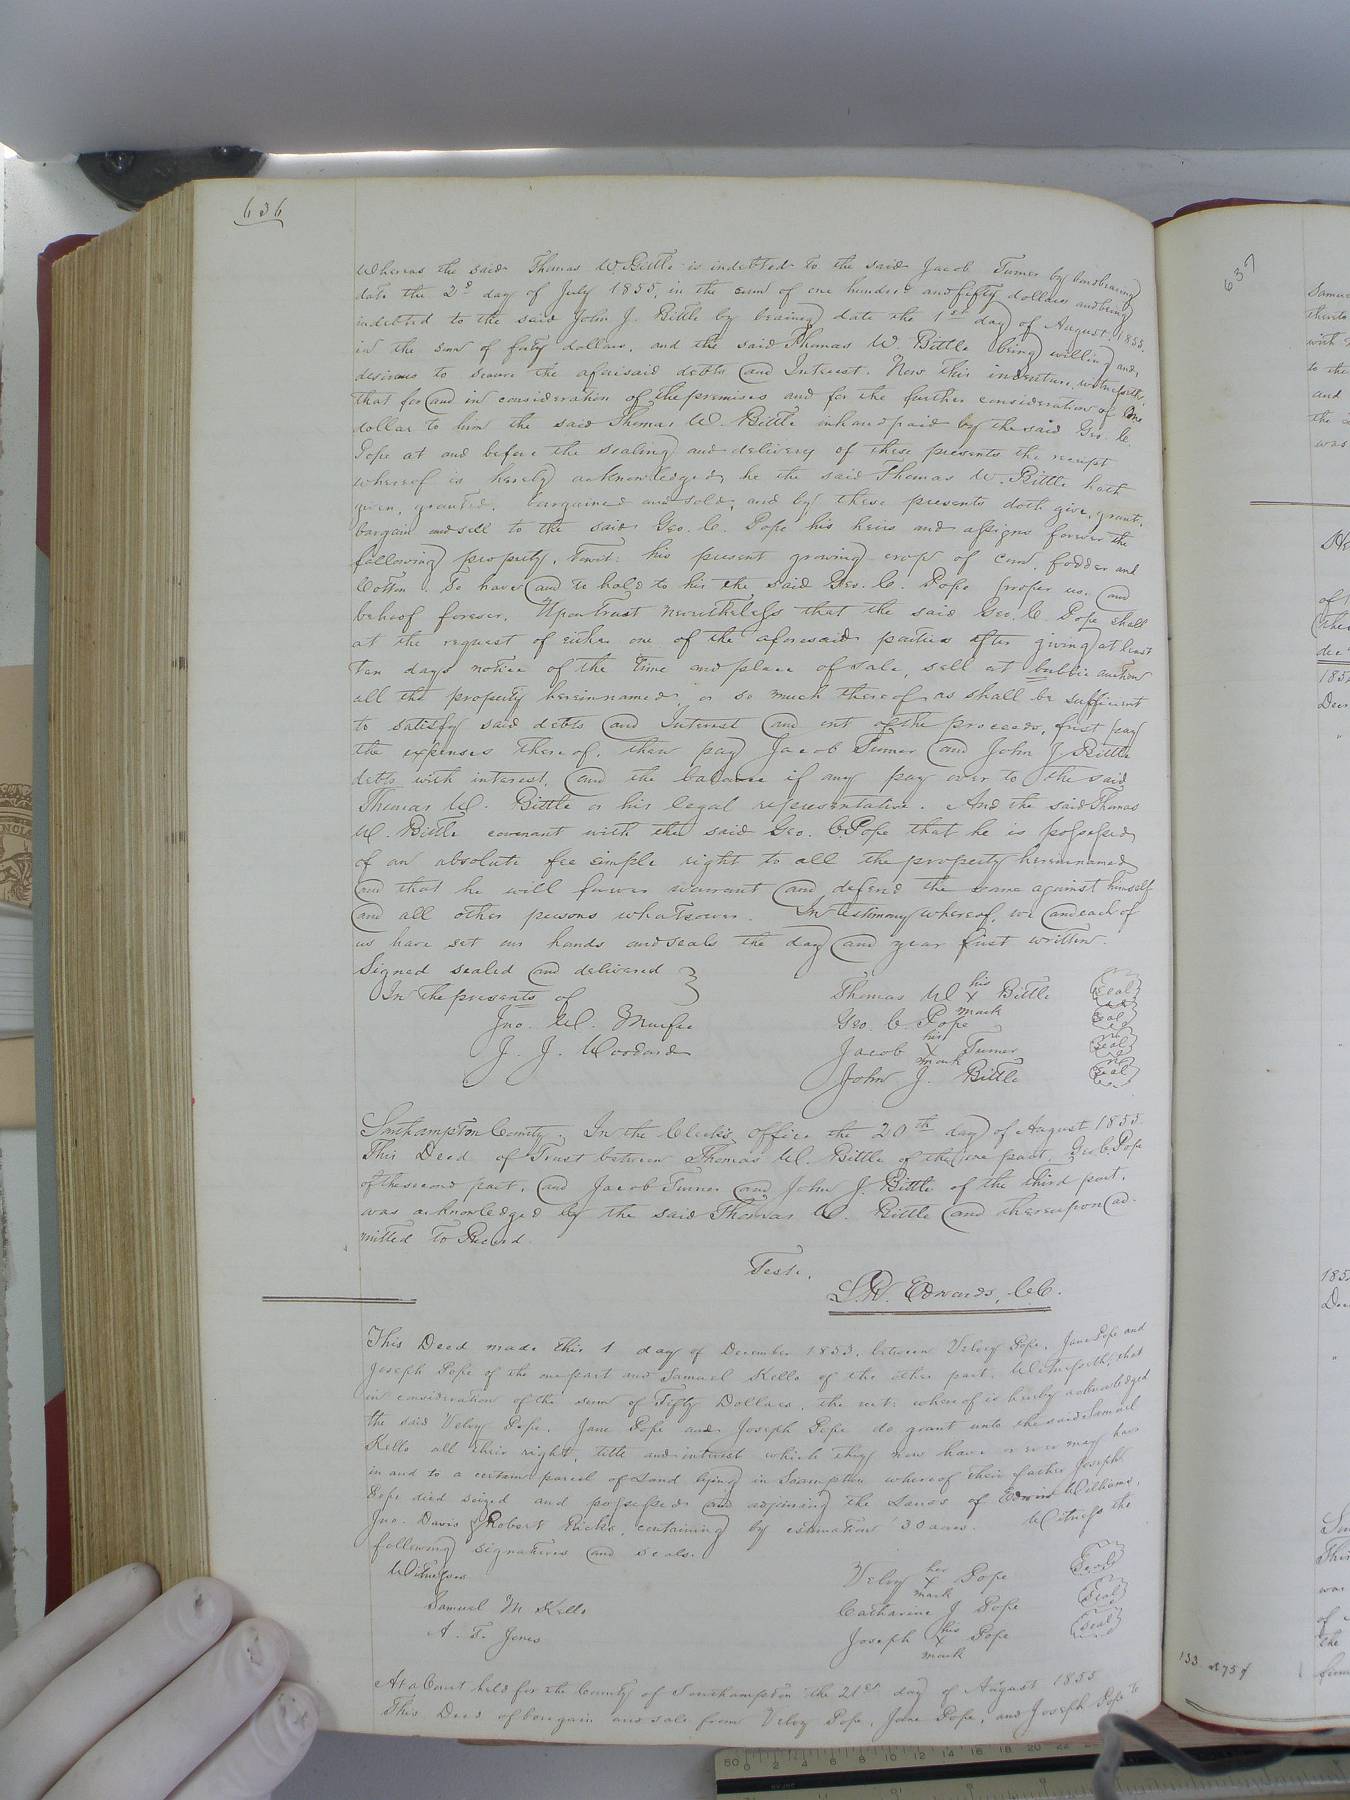 636
Whereas the said Thomas W Bittle is indebted to the said Jacob Turner by bond bearing
date the 2d day of July 1855, in the sum of one hundred and fifty dollars and being
indebted to the said John J. Bittle by bearing date the 1st day of August 1855.
in the sum of forty dollars, and the said Thomas W. Bittle being willing and
desirous to secure the aforesaid debts and Interest. Now this indenture, witnesseth,
that for and in consideration of the premises and for the further consideration of One
dollar to him the said Thomas W. Bittle in hand paid by the said Geo. C.
Pope at and before the sealing and delivery of these presents the receipt
whereof is hereby acknowledged, he the said Thomas W. Bittle hath
given, granted, bargained and sold, and by these presents doth give, grant,
bargain and sell to the said Geo. C. Pope his heirs and assigns forever the
following property, Towit: his present growing crop of Corn, fodder and
Cotton. To have and to hold to his the said Geo. C. Pope proper us. and
behoof forever. Upon trust nevertheless that the said Geo. C. Pope shall
at the request of either one of the aforesaid parties after giving at least
Ten days notice of the time and place of sale, sell at bublic auction
all the property herein named, or so much thereof as shall be sufficient
to satisfy said debts and Interest and out of the proceeds, first pay
the expenses thereof, then pay Jacob Turner and John J Bittle
debts with interest, and the balance if any pay over to the said
Thomas W. Bittle or his legal representative. And the said Thomas
W. Bittle covenant with the said Geo. C Pope that he is possessed
of an absolute fee simple right to all the property herein named
and that he will forever warrant and defend the same against himself
and all other persons whatsoever. In testimony whereof, we and each of
us have set our hands and seals the day and year first written.
Signed sealed and delivered
In the presents of
Thomas W his X mark Bittle Seal
Jno. W. Murfee
Geo. C. Pope Seal
J. J. Woodard
Jacob his X mark Turner Seal
John J. Bittle Seal
Southampton County. In the Clerk's Office the 20th day of August 1855.
This Deed of Trust between Thomas W. Bittle of the one part, Geo. C. Pope
of the second part, and Jacob Turner and John J. Bittle of the third part,
was acknowledged by the said Thomas W. Bittle and thereupon ad-
mitted to Record.
Teste,
L. R. Edwards, C.C.
This Deed made this 1 day of December 1853, between Velvy Pope, Jane Pope and
Joseph Pope of the one part and Samuel Kello of the other part. Witnesseth, that
in consideration of the sum of Fifty Dollars, the rect: whereof is hereby acknowledged
the said Velvy Pope, Jane Pope and Joseph Pope do grant unto the said Samuel
Kello all their right, title and interest which they now have or ever may have
in and to a certain parcel of Land lying in Soampton whereof their father Joseph
Pope died seized and possessed and adjoining the Lands of Edwin Williams,
Jno. Davis & Robert Ricks, containing by estimation 30 acres. Witness the
following signatures and seals.
Witnesses
Velvy her X mark Pope Seal
Samuel M Kello
Catharine J Pope Seal
A. T. Jones
Joseph his X mark Pope Seal
At a Court held for the County of Southampton the 21st day of August 1855
This Deed of bargain and sale from Velvy Pope, Jane Pope, and Joseph Pope to
637